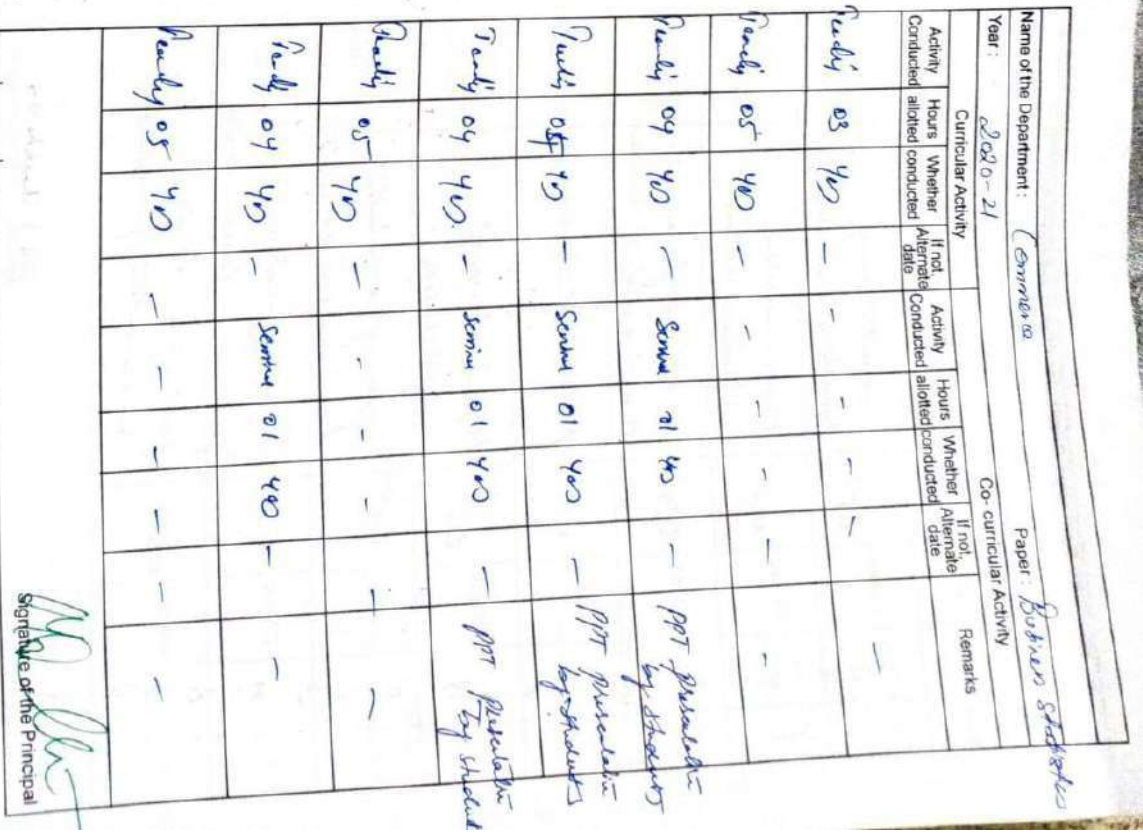 Name of the Department : Commerce Paper : Business Statistics
Year : 2020-21
Curricular Activity Co- curricular Activity Remarks
Activity Conducted Hours allotted Whether conducted If not, Alternate date Activity Conducted Hours allotted Whether conducted If not, Alternate date
03 yes - - - - - -
05 yes - - - - - -
04 yes - Seminar 01 yes - PPT presentation by students
yes - Seminar 01 yes - PPT presentation by students
04 yes - Seminar 01 yes - PPT presentation by student
05 yes - - - - - -
04 yes - Seminar 01 yes - -
05 yes - - - - - -
Signature of the Principal